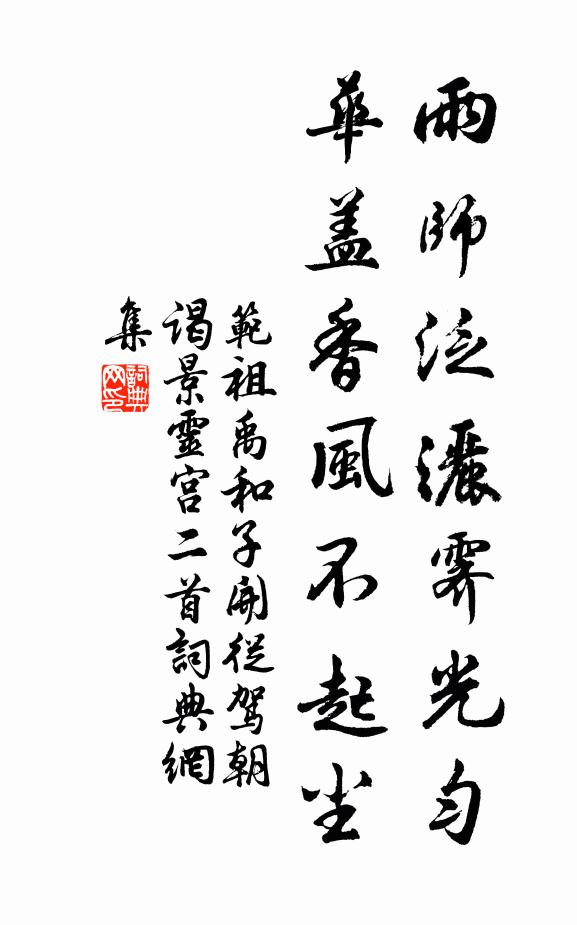 雨師泛灑霽光勻
華蓋香風不起尘
範祖禹和子開從駕朝
謁景靈宮二首詞典網
集
詞典网印